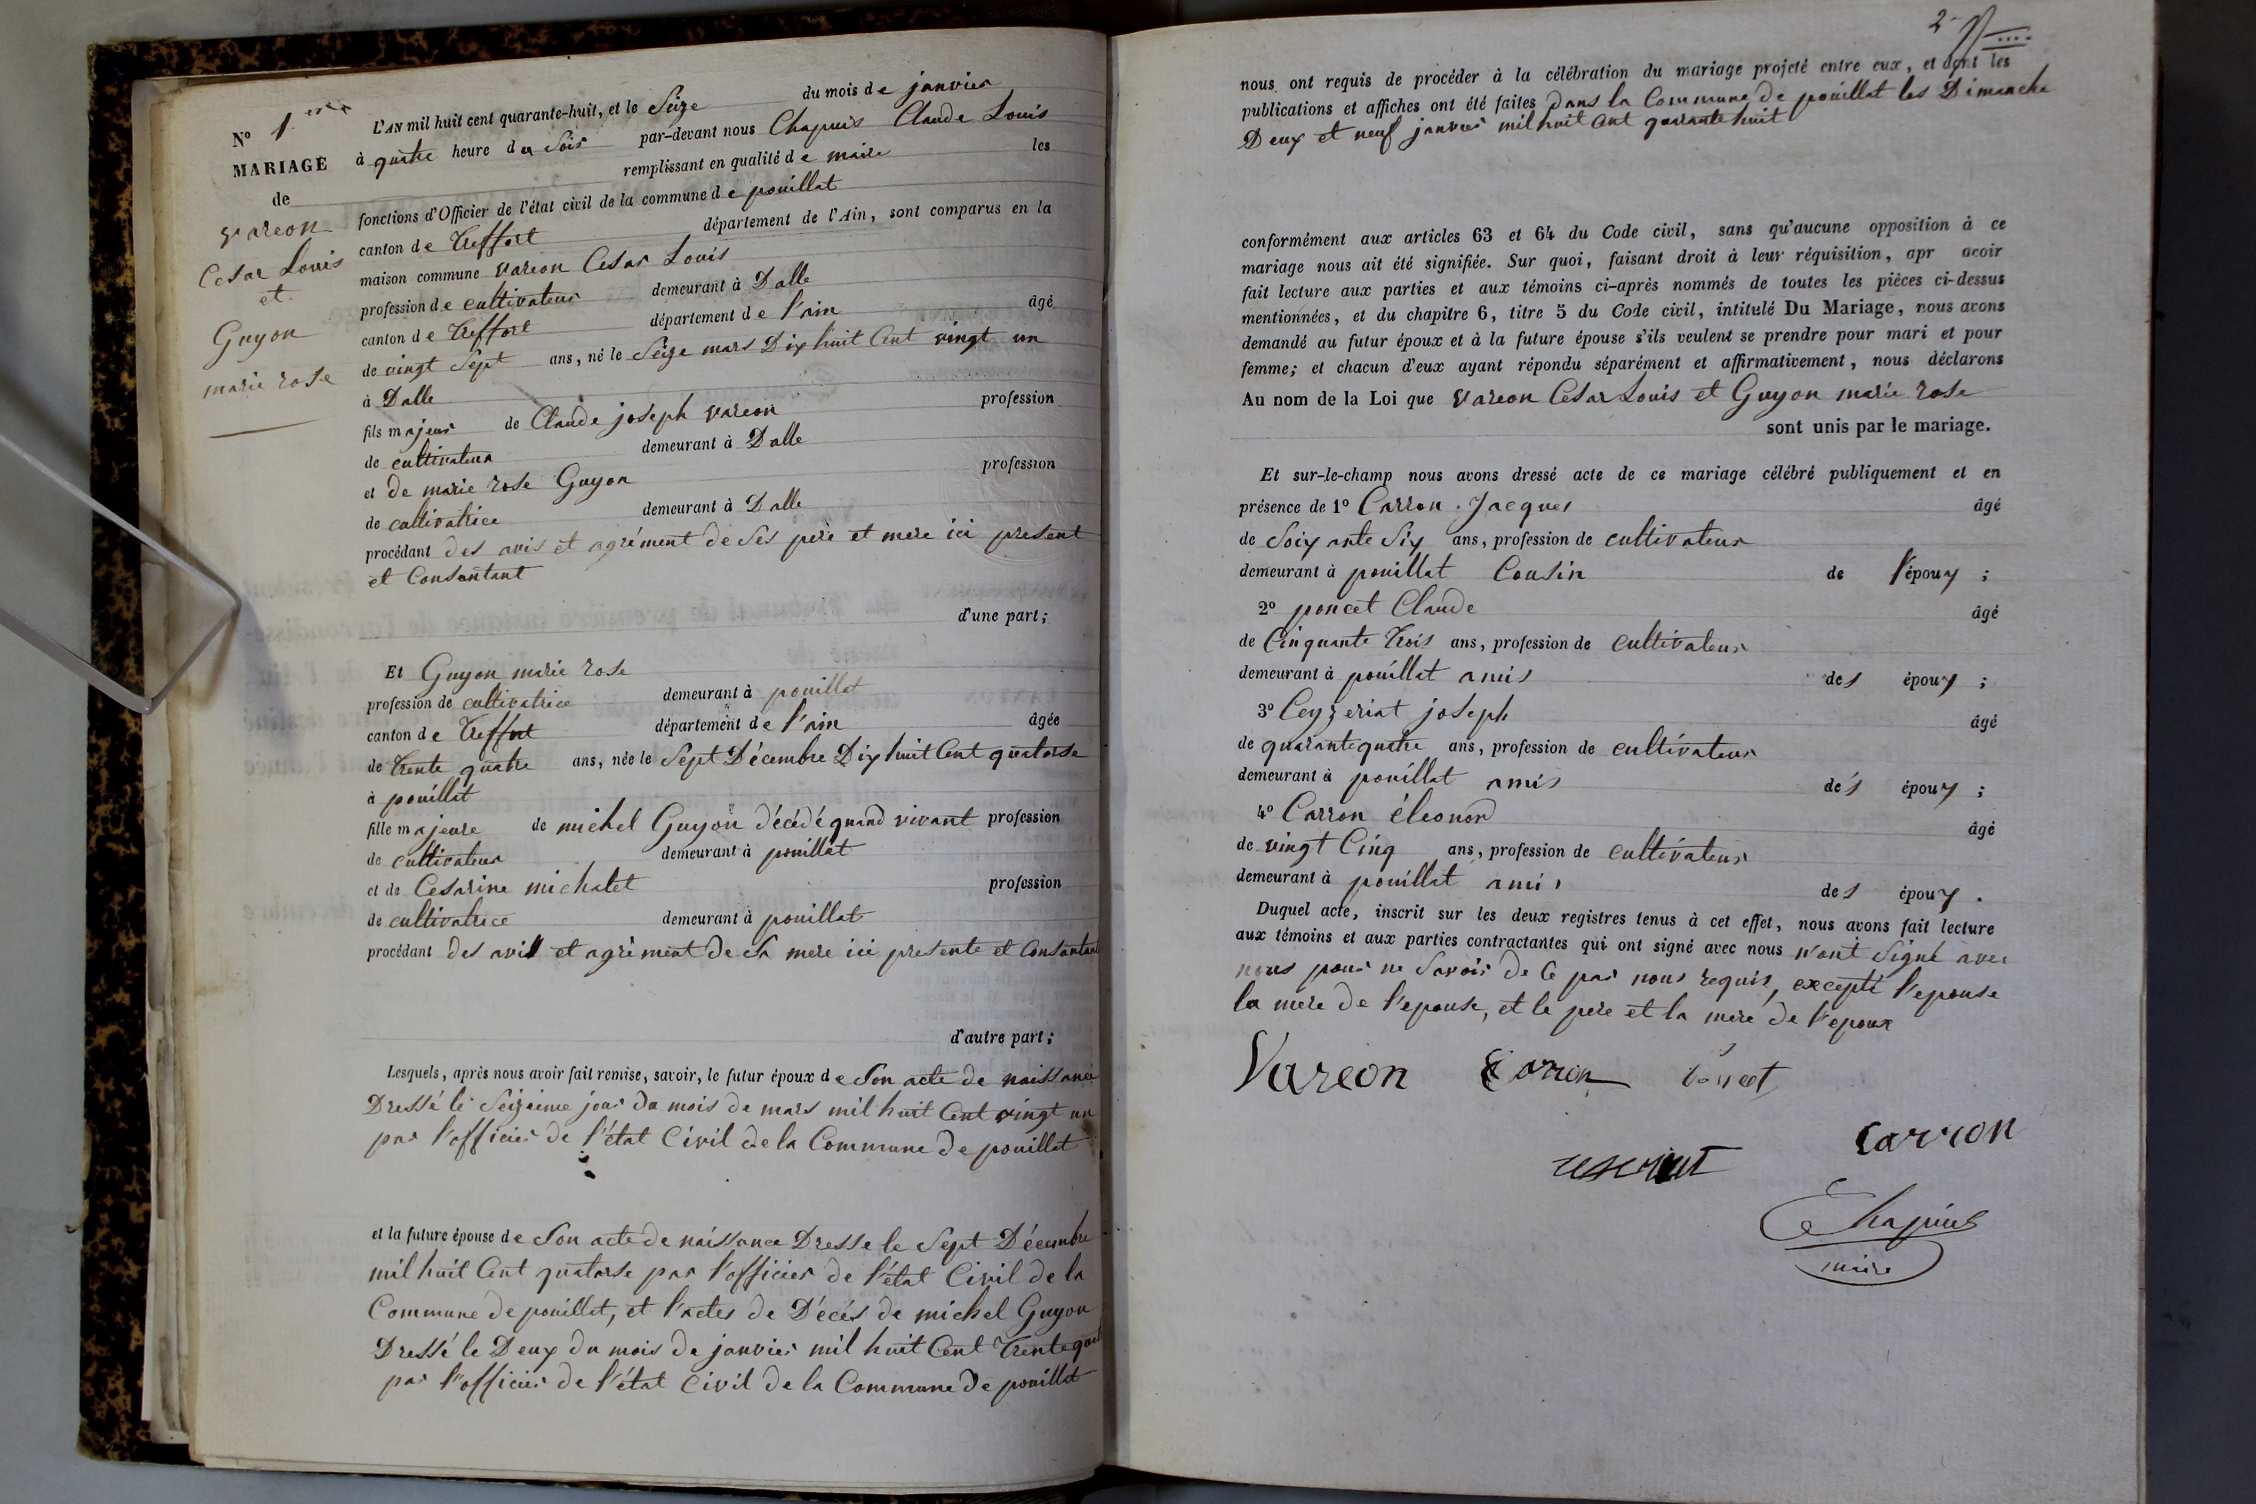 N° 1
MARIAGE
de
Vareon
Cesar Louis
et
Guyon
marie rose
L'AN mil huit cent quarante-huit, et le Seize du mois de janvier
à quatre heure du Soir par-devant nous Chapuis Claude Louis
remplissant en qualité de maire les
fonctions d'Officier de l'état civil de la commune de pouillat
canton de Treffort département de l'Ain, sont comparus en la
maison commune Vareon Cesar Louis
profession de cultivateur demeurant à Dalle
canton de Treffort département de l'ain âgé
de vingt Sept ans, né le Seize mars Dix huit Cent vingt un
à Dalle
fils majeur de Claude joseph Vareon profession
de cultivateur demeurant à Dalle
et de marie rose Guyon profession
de cultivatrice demeurant à Dalle
procédant des avis et agrément de Ses père et mere ici present
et Consentant
d'une part;
Et Guyon marie rose
profession de cultivatrice demeurant à pouillat
canton de Treffort département de l'ain âgée
de Trente quatre ans, née le Sept Décembre Dix huit Cent quatorse
à pouillat
fille majeure de michel Guyon décédé quand vivant profession
de cultivateur demeurant à pouillat
et de Cesarine michalet profession
de cultivatrice demeurant à pouillat
procédant des avis et agrément de Sa mere ici presente et Consentant
d'autre part;
Lesquels, après nous avoir fait remise, savoir, le futur époux de Son acte de naissance
Dressé le Seizieme jour du mois de mars mil huit Cent vingt un
par l'officier de l'état Civil de la Commune de pouillat
et la future épouse de Son acte de naissance Dresse le Sept Décembre
mil huit Cent quatorse par l'officier de l'état Civil de la
Commune de pouillat, et l'actes de Décés de michel Guyon
Dressé le Deux du mois de janvier mil huit Cent Trente
par l'officier de l'état Civil de la Commune de pouillat
2
nous ont requis de procéder à la célébration du mariage projeté entre eux, et dont les
publications et affiches ont été faites Dans la Commune de pouillat les Dimanche
Deux et neuf janvier mil huit Cent quarante huit
conformément aux articles 63 et 64 du Code civil, sans qu'aucune opposition à ce
mariage nous ait été signifiée. Sur quoi, faisant droit à leur réquisition, apr avoir
fait lecture aux parties et aux témoins ci-après nommés de toutes les pièces ci-dessus
mentionnées, et du chapitre 6, titre 5 du Code civil, intitulé Du Mariage, nous avons
demandé au futur époux et à la future épouse s'ils veulent se prendre pour mari et pour
femme; et chacun d'eux ayant répondu séparément et affirmativement, nous déclarons
Au nom de la Loi que Vareon Cesar Louis et Guyon marie rose
sont unis par le mariage.
Et sur-le-champ nous avons dressé acte de ce mariage célébré publiquement et en
présence de 1° Carron Jacques âgé
de Soixante Six ans, profession de cultivateur
demeurant à pouillat Cousin de l'époux ;
2° poncet Claude âgé
de Cinquante Trois ans, profession de cultivateur
demeurant à pouillat amis des époux ;
3° Ceyzeriat joseph âgé
de quarante quatre ans, profession de cultivateur
demeurant à pouillat amis des époux ;
4° Carron éleonor âgé
de vingt Cinq ans, profession de cultivateur
demeurant à pouillat amis des époux .
Duquel acte, inscrit sur les deux registres tenus à cet effet, nous avons fait lecture
aux témoins et aux parties contractantes qui ont signé avec nous n'ont Signé avec
nous pour ne Savoir de Ce par nous requis, excepté l'epouse
la mere de l'epouse, et le père et la mere de l'epoux
Vareon Carron Poncet
Carron
Chapuis
maire